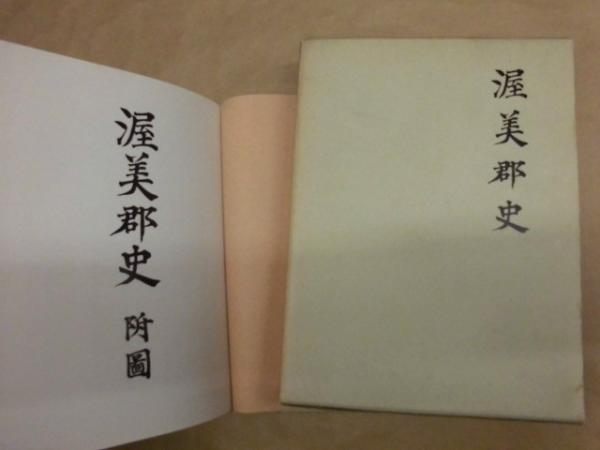 渥美郡史
附圖
渥美郡史